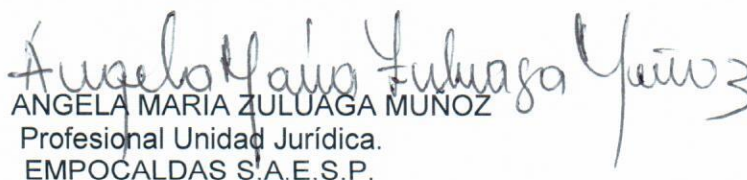 Ángela María Zuluaga Muñoz
ANGELA MARIA ZULUAGA MUÑOZ
Profesional Unidad Jurídica.
EMPOCALDAS S.A.E.S.P.